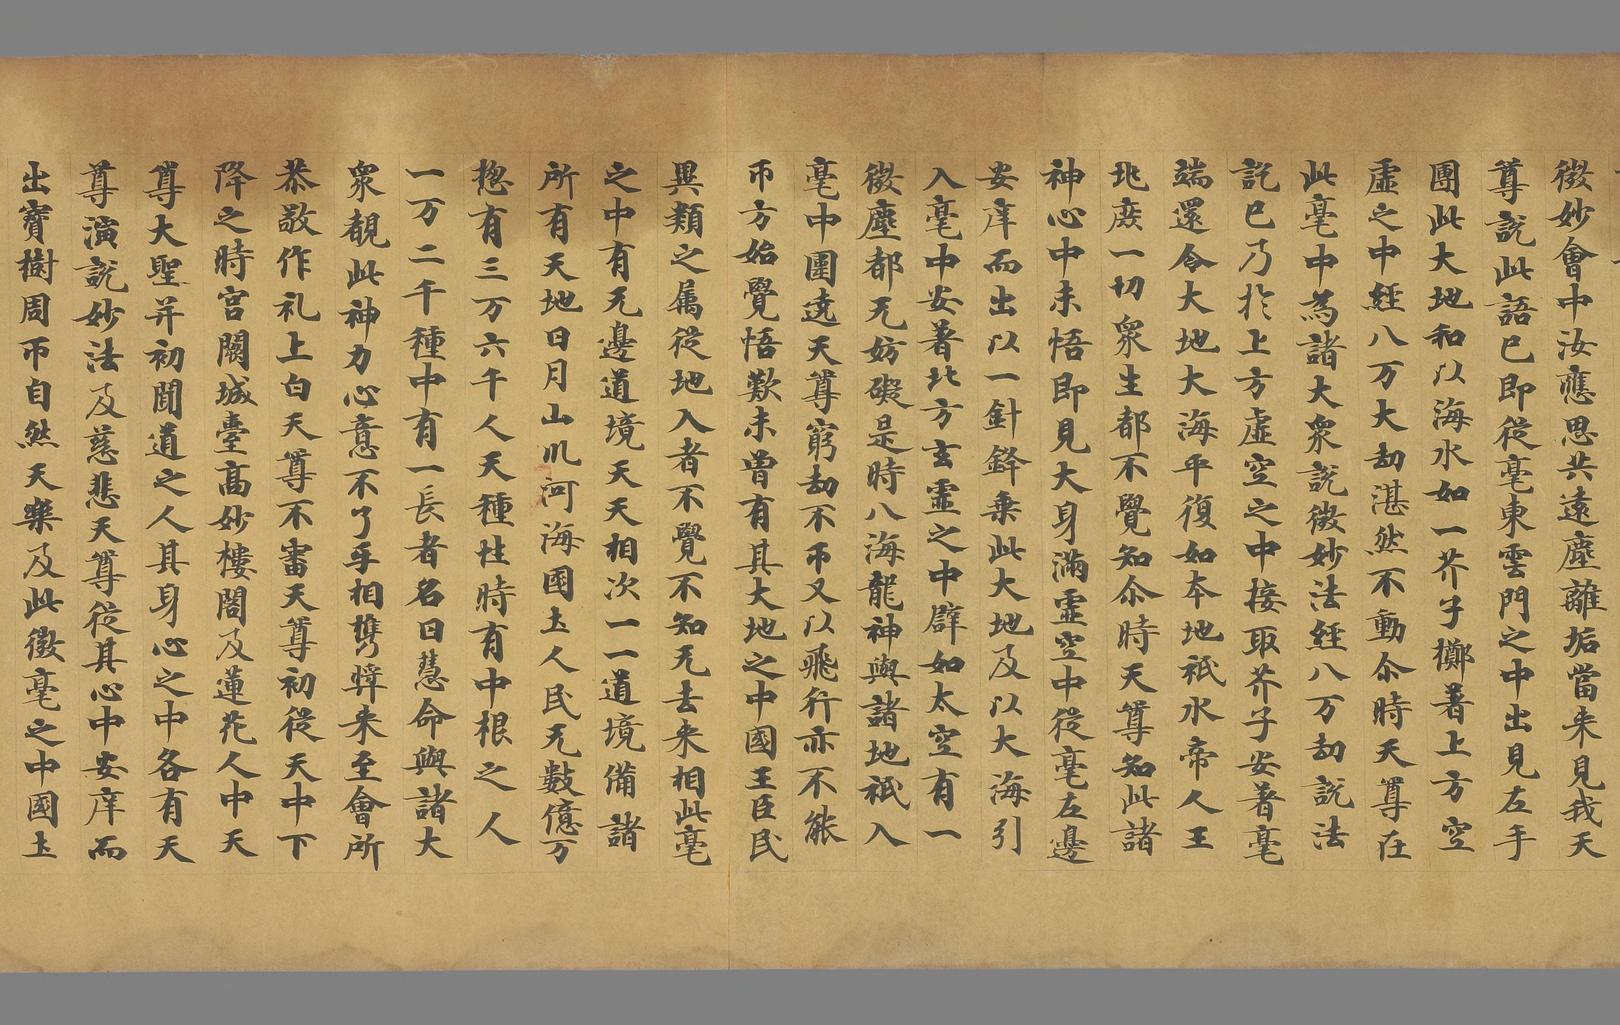 微妙會中汝應思共遠塵離垢當来見我天
尊説此語已即從毫東雲門之中出見左手
團此大地和以海水如一芥子擲著上方空
虛之中經八万大劫湛然不動尒時天尊在
此毫中為諸大衆説微妙法經八万劫説法
訖已乃於上方虛空之中接取芥子安著毫
端還令大地大海平復如本地祇水帝人王
兆庻一切衆生都不覺知尒時天尊知此諸
神心中未悟即見大身滿虛空中從毫左邊
安庠而出以一針鋒乗此大地及以大海引
入毫中安著北方玄靈之中辟如太空有一
微塵都无妨礙是時八海龍神與諸地祇入
毫中圍遶天尊窮劫不帀又以飛行亦不能
帀方始覺悟歎未曽有其大地之中國王臣民
異類之属從地入者不覺不知无去来相此毫
之中有无邊道境天天相次一一道境備諸
所有天地日月山川河海國土人民无數億万
揔有三万六千人天種性時有中根之人
一万二千種中有一長者名曰慧命與諸大
衆覩此神力心意不了乎相擕弉来至會所
恭敬作礼上白天尊不審天尊初從天中下
降之時宮闕城臺高妙樓閣及蓮花人中天
尊大聖并初聞道之人其身心之中各有天
尊演説妙法及慈悲天尊從其心中安庠而
出寶樹周帀自然天樂及此微毫之中國土